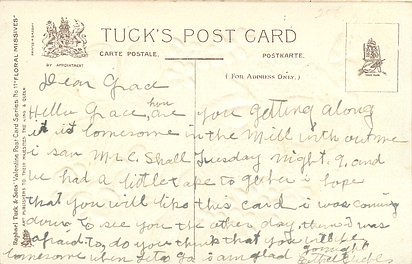 TUCK'S POST CARD
CARTE POSTALE.
POSTKARTE.
BY APPOINTMENT
( FOR ADDRESS ONLY. )
Raphael Tuck & Sons' Valentine Post Card Series No 11 "FLORAL MISSIVES"
ART PUBLISHERS TO THEIR MAJESTIES THE KING & QUEEN
Dear Grace
Hello Grace, how are you getting along
is it lonesome in the Mill without me
i saw Mr C. Shall Tuesday night. 9. and
we had a little to gether i hope
that you will like this card i was coming
down to see you the other day, then i was
afraid to, do you think that you will be
lonesome when i go i am glad